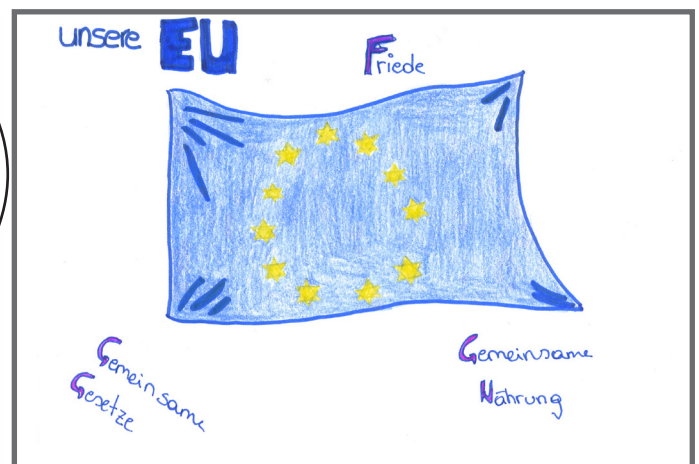 unsere EU
Friede
Gemeinsame
Gesetze
Gemeinsame
Nährung